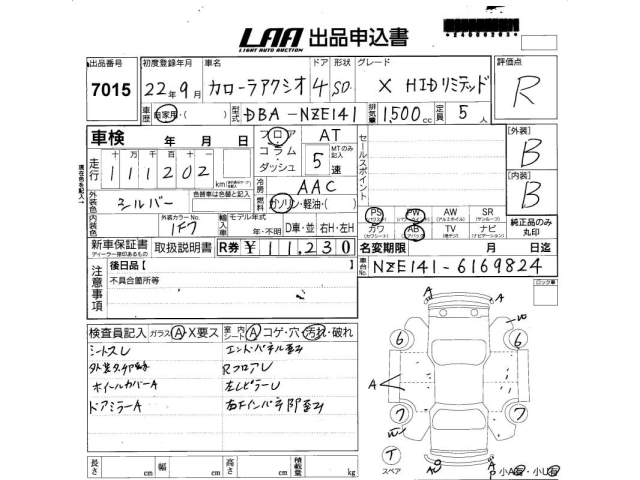 LAA 出品申込書
LIGHT AUTO AUCTION
出品番号 初度登録年月 車名 ドア 形状 グレード 評価点
7015 22年9月 カローラアクシオ 4 SD X HIDリミテッド R
車歴 自家用・( ) 型式 DBA-NZE141 排気量 1,500cc 定員 5人
車検 年 月 日 フロア・コラム・ダッシュ AT MTのみ記入 5速
セールスポイント
[外装] B
走行 十 万 千 百 十
111202 km
現在色を記入
冷房 AAC
[内装] B
外装色 シルバー 色替車は色替と記入
燃料 ガソリン・軽油・( )
PS PW AW SR
(パワステ) (パワーウインドウ) (アルミホイル) (サンルーフ)
内装色 外装カラーNo. 1F7 輸入車 モデル年式 年・不明 D車・並 右H・左H
カワ AB TV ナビ
(カワシート) (エアバッグ) (地デジ) (ナビゲーション)
純正品のみ丸印
新車保証書 取扱説明書 R券 ¥11,230 名変期限 月 日迄
ディーラー様印あるもの
注意事項 後日品[ ]
車台No. NZE141-6169824
不具合箇所等
ロック車
検査員記入 ガラス A X要ス 室内シート A コゲ・穴・汚れ・破れ
シートスレ エンドパネル歪ミ
RフロアU
ホイールカバーA 左LピラーU
ドアミラーA
A
6 6
A
7 7
T
スペア
A A
小A・小U
長さ cm 幅 cm 高さ cm 積載量 kg